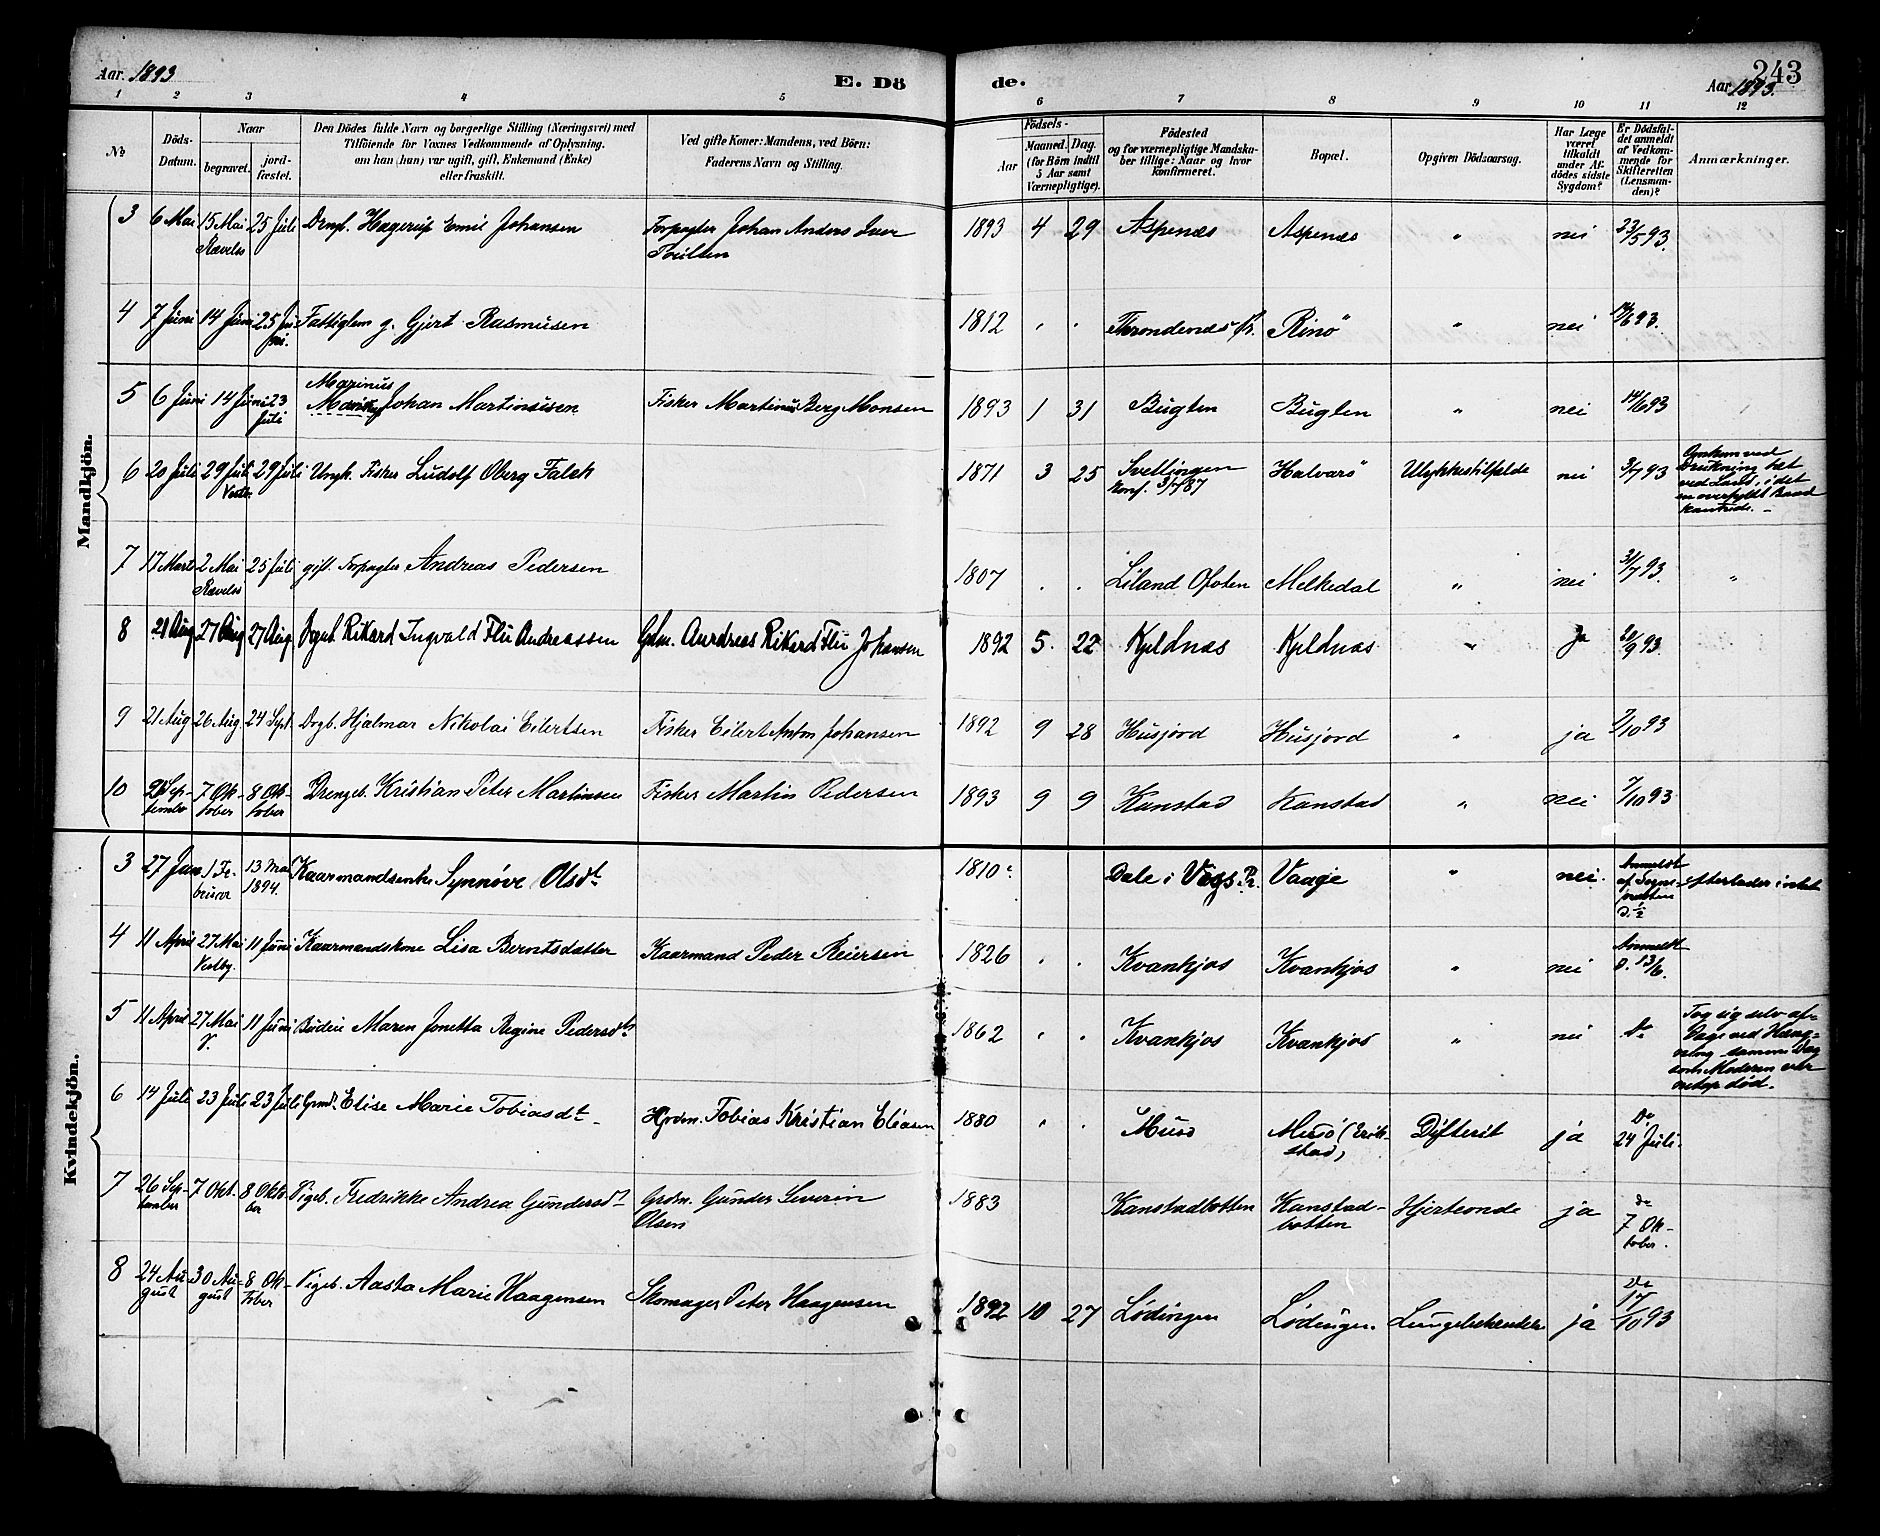 Aar. 1893
E. Döde.
243
Aar 1893.
1 2 3 4 5 6 7 8 9 10 11 12
No
Döds-Datum.
Naar
begravet.
jordfæstet.
Den Dödes fulde Navn og borgerlige Stilling (Næringsvei) med
Tilföiende for Voxnes Vedkommende af Oplysning,
om han (hun) var ugift, gift, Enkemand (Enke)
eller fraskilt.
Ved gifte Koner: Mandens, ved Börn:
Faderens Navn og Stilling.
Födsels-
Aar
Maaned. Dag.
(for Börn indtil
5 Aar samt
Værnepligtige).
Födested
og for værnepligtige Mandskaber tillige: Naar og hvor
konfirmeret.
Bopæl.
Opgiven Dödsaarsag.
Har Læge
været
tilkaldt
under Afdödes sidste
Sygdom?
Er Dödsfaldet anmeldt
af Vedkommende for
Skifteretten
(Lensmanden)?
Anmærkninger.
Mandkjön.
3 6 Mai 15 Mai 25 Juli Hagerup Emil Johansen Forpagter Johan Anders Iver 1893 4 29 Aspenæs Aspenæs " nei 23/5 93.
4 7 Juni 14 Juni 25 Juni. Fattiglem g. Gjert Rasmusen 1812 " " Throndenes Pr. Rinø " nei 14/6 93.
5 6 Juni 14 Juni 23 Juli Marinus Johan Martinusen Fisker Martinus Berg Monsen 1893 1 31 Bugten Bugten " nei 14/6 93
6 20 Juli 29 Juli 29 Juli Ungk. Fisker Ludolf Oberg Falch 1871 3 25 Svellingen Konf. 3/7 87 Halvarø Ulykkestilfælde nei 3/7 93 Omkom ved Drukning tæt ved Land, idet en overfyldt Baad kantrede.
7 17 Marts 2 Mai 25 Juli gift. Forpagter Andreas Pedersen 1807 . . Liland Ofoten Melkedal " nei 31/7 93. "
8 21 Aug 27 Aug 27 Aug Rikard Ingvald Flu Andreassen Gdm. Andreas Rikard Flu Johansen 1892 5. 22 Kjeldnæs Kjeldnæs " Ja 20/9 93.
9 21 Aug 26 Aug. 24 Sept. Drgb. Hjalmar Nikolai Eilertsen Fisker Eilert Anton Johansen 1892 9 28 Husjord Husjord " ja 7/10 93
10 September 7 Oktober 8 Oktober Drengeb. Kristian Peter Martinsen Fisker Martin Pedersen 1893 9 9 Kanstad Kanstad " nei 7/10 93.
Kvindekjön.
3 27 Jan. 1 Februar 13 Mai 1894. Kaarmandsenke Synnøve Olsdt. 1810 Dale i Pr. Vaage " nei. Anmeldt af Sognepresten D. 1/2 Efterlader intet
4 11 April 27 Mai Vestby. 11 Juni Kaarmandskone Lisa Berntsdatter Kaarmand Peder Reiersen 1826 . . Kvankjos Kvankjos " nei Anmeldt D. 13/6.
5 11 April 27 Mai V. 11 Juni Budeie Maren Jonetta Regine Pedersdt. 1862 . . Kvankjos Kvankjos " nei Do Tog sig selv af Dage ved Hængning samme Dag som Moderen var netop død.
6 14 Juli 23 Juli 23 Juli Grmd. Elise Marie Tobiasdt. Grdm. Tobias Kristian Eliasen 1880 " . Musø Musø (Erikstad) Difterit ja Do 24 Juli.
7 26 September 7 Okt. 8 Oktober Pigeb. Fredrikke Andrea Gundersdt. Grdm. Gunder Severin Olsen 1883 Kanstadbotten Kanstadbotten Hjerteonde ja do 7 Oktober.
8 24 August 30 August 8 Oktober Pigeb. Aasta Marie Haagensen Skomager Peter Haagensen 1892 10 27 Lødingen Lødingen Lungebetændelse ja Do 17/10 93